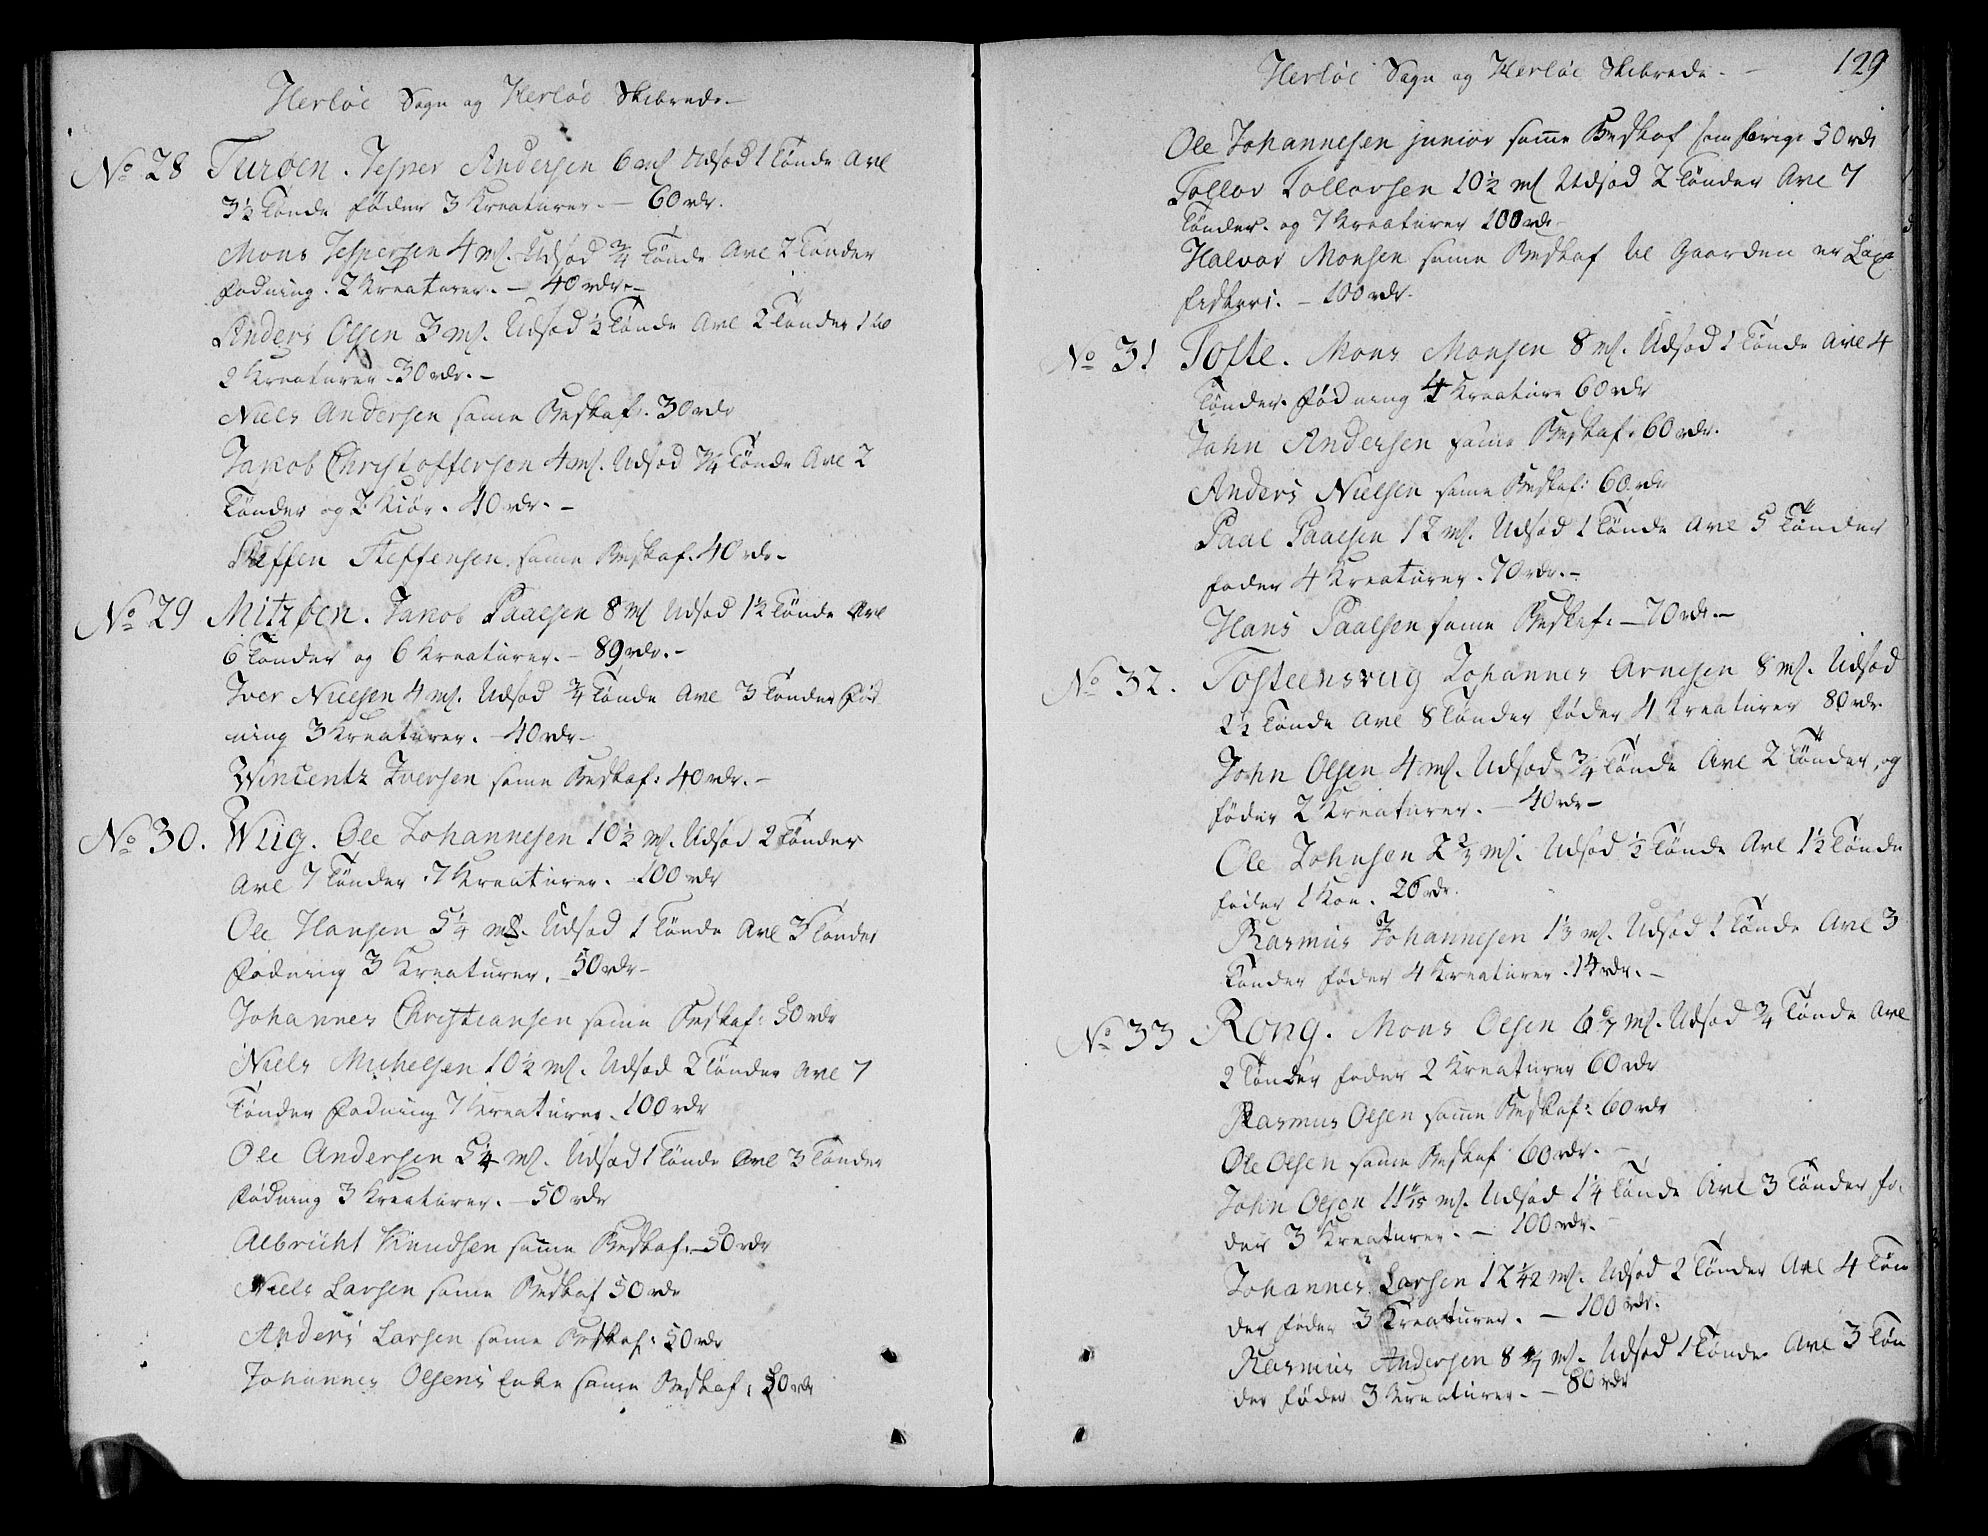 Herløe Sogn og Herløe Skibrede. —
No 28 Turøen. Jesper Andersen 6 mf Udsæd 1 Tønde Avl
3½ Tønde føder 3 Kreaturer. — 60 rdr.
Mons Jespersen 4 mf. Udsæd ¾ Tønde Avl 2 Tønder
Fødning. 2 Kreaturer. — 40 rdr. —
Anders Olsen 3 mf. Udsæd ½ Tønde Avl 2 Tønder
2 Kreaturer. 30 rdr. —
Niels Andersen same Beskaf. 30 rdr
Jakob Christoffersen 4 mf. Udsæd ¾ Tønde Avl 2
Tønder og 2 Kiør. 40 rdr. —
Steffen Steffensen. same Beskaf. 40 rdr. —
No 29 Mitzøen. Jakob Paalsen 8 mf Udsæd 1½ Tønde Avl
6 Tønder og 6 Kreaturer. — 89 rdr. —
Iver Nielsen 4 mf. Udsæd ¾ Tønde Avl 3 Tønder Fød
ning 3 Kreaturer. — 40 rdr —
Wincentz Iversen same Beskaf: 40 rdr. —
No 30. Wiig. Ole Johannesen 10½ mf. Udsæd 2 Tønder
Avl 7 Tønder. 7 Kreaturer. 100 rdr
Ole Hansen 5¼ mf. Udsæd 1 Tønde Avl 3 Tønder
Fødning 3 Kreaturer. 50 rdr —
Johannes Christiansen same Beskaf: 50 rdr
Niels Michelsen 10½ mf. Udsæd 2 Tønder Avl 7
Tønder Fødning 7 Kreaturer. 100 rdr
Ole Andersen 5¼ mf. Udsæd 1 Tønde Avl 3 Tønder
Fødning 3 Kreaturer. — 50 rdr
Albricht Knudsen same Beskaf: 50 rdr
Niels Larsen same Beskaf 50 rdr
Anders Larsen same Beskaf: 50 rdr
Johannes Olsens Enke same Beskaf: 50 rdr
Herløe Sogn og Herløe Skibrede. — 129
Ole Johannesen junior same Beskaf som forige 50 rdr
Tollov Tollovsen 10½ mf Udsæd 2 Tønder Avl 7
Tønder. og 7 Kreaturer 100 rdr
Halvor Monsen same Beskaf til Gaarden er Laxe
fiskeri. — 100 rdr.
No 31 Tofte. Mons Monsen 8 mf. Udsæd 1 Tønde Avl 4
Tønder. Fødning 4 Kreature 60 rdr
John Andersen same Beskaf: 60 rdr.
Anders Nielsen same Beskaf: 60 rdr
Paal Paalsen 12 mf. Udsæd 1 Tønde Avl 5 Tønder
føder 4 Kreaturer. 70 rdr. —
Hans Paalsen same Beskaf. — 70 rdr. —
No 32. Tosteensvig Johannes Arnesen 8 mf. Udsæd
2½ Tønde Avl 8 Tønder føder 4 Kreaturer 80 rdr.
John Olsen 4 mf. Udsæd ¾ Tønde Avl 2 Tønder, og
føder 2 Kreaturer. — 40 rdr —
Ole Johnsen 2⅔ mf. Udsæd ½ Tønde Avl 1½ Tønde
føder 1 Koe. 26 rdr.
Rasmus Johannesen 1⅓ mf. Udsæd 1 Tønde Avl 3
Tønder føder 4 Kreaturer. 14 rdr. —
No 33 Rong. Mons Olsen 6 6/7 mf. Udsæd ¾ Tønde Avl
2 Tønder føder 2 Kreaturer 60 rdr
Rasmus Olsen same Beskaf: 60 rdr
Ole Olsen same Beskaf 60 rdr. —
John Olson 11 mf. Udsæd 1¼ Tønde Avl 3 Tønder fø
der 3 Kreaturer. — 100 rdr. —
Johannes Larsen 12 mf. Udsæd 2 Tønder Avl 4 Tøn
der føder 3 Kreaturer. — 100 rdr.
Rasmus Andersen 8 4/7 mf. Udsæd 1 Tønde Avl 3 Tøn
der føder 3 Kreaturer. — 80 rdr